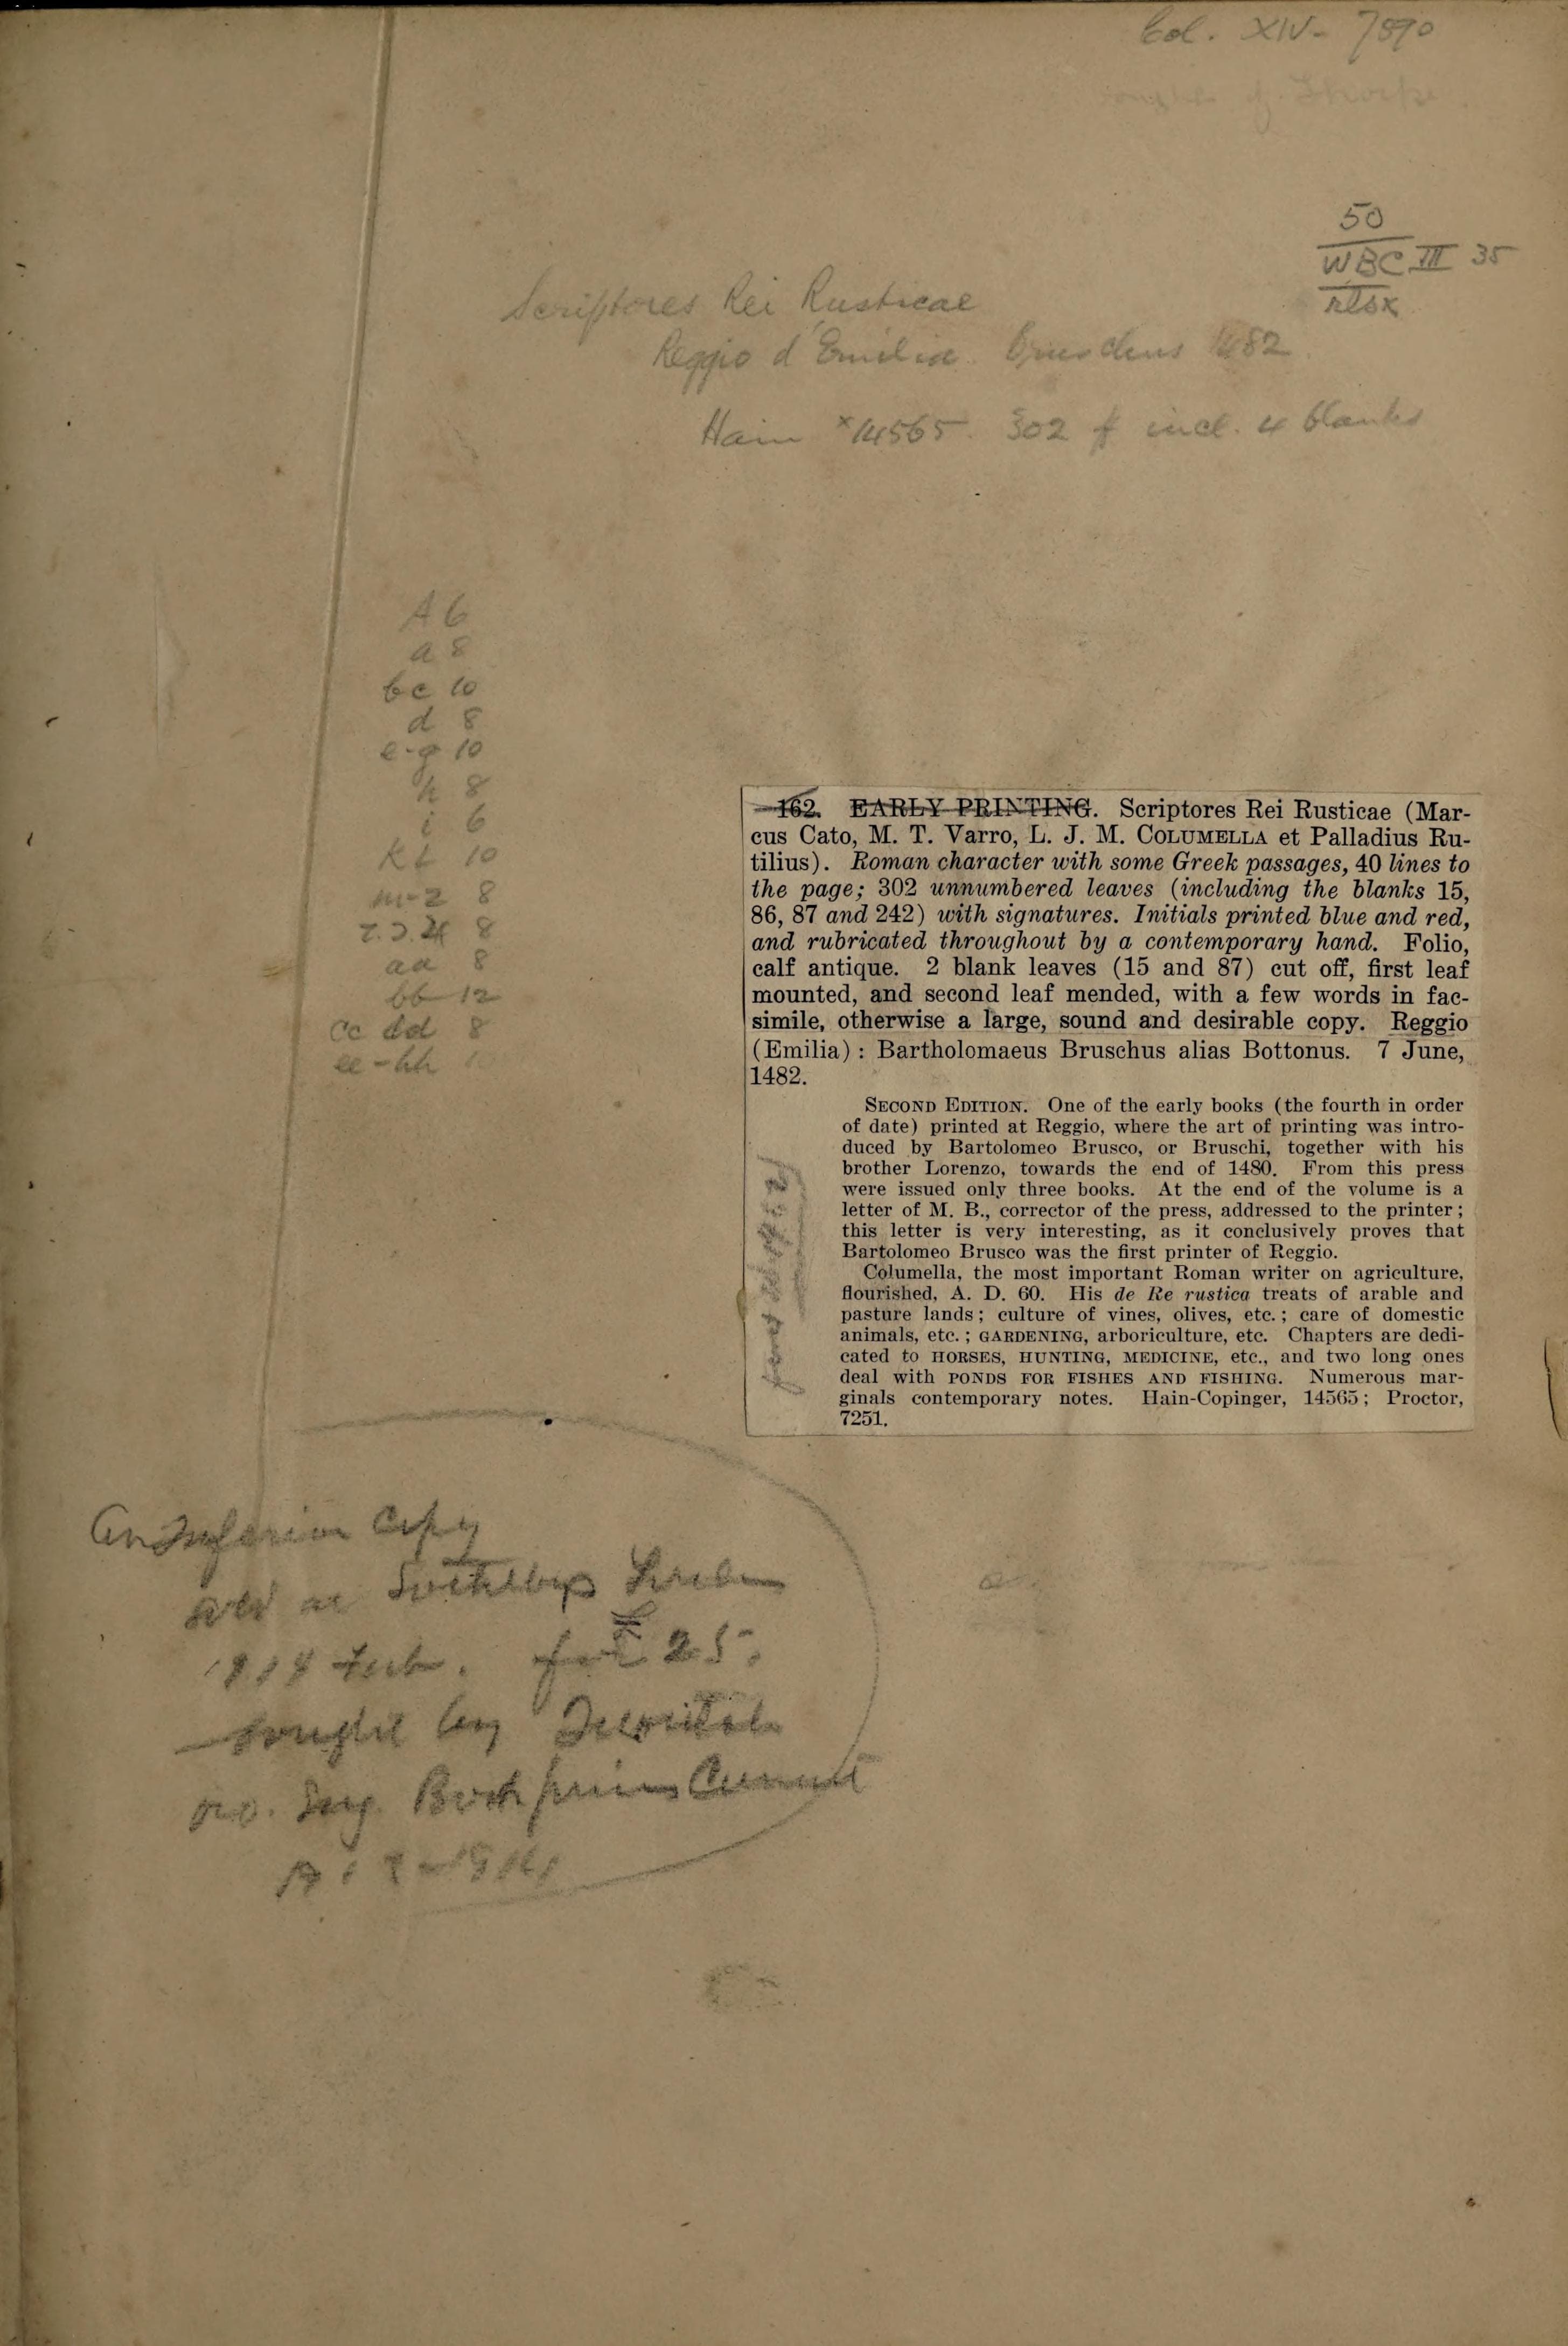 Col. XIV- 7890
50
WBC III 35
Scriptores Rei Rusticae
Reggio d'Emilia. Bruschus 1482.
Hain *14565. 302 f incl. 4 blanks
A 6
a 8
bc 10
d 8
e-g 10
h 8
i 6
kl 10
m-z 8
aa 8
bb 12
cc dd 8
ee-hh
162. EARLY PRINTING. Scriptores Rei Rusticae (Mar-
cus Cato, M. T. Varro, L. J. M. COLUMELLA et Palladius Ru-
tilius). Roman character with some Greek passages, 40 lines to
the page; 302 unnumbered leaves (including the blanks 15,
86, 87 and 242) with signatures. Initials printed blue and red,
and rubricated throughout by a contemporary hand. Folio,
calf antique. 2 blank leaves (15 and 87) cut off, first leaf
mounted, and second leaf mended, with a few words in fac-
simile, otherwise a large, sound and desirable copy. Reggio
(Emilia) : Bartholomaeus Bruschus alias Bottonus. 7 June,
1482.
SECOND EDITION. One of the early books (the fourth in order
of date) printed at Reggio, where the art of printing was intro-
duced by Bartolomeo Brusco, or Bruschi, together with his
brother Lorenzo, towards the end of 1480. From this press
were issued only three books. At the end of the volume is a
letter of M. B., corrector of the press, addressed to the printer;
this letter is very interesting, as it conclusively proves that
Bartolomeo Brusco was the first printer of Reggio.
Columella, the most important Roman writer on agriculture,
flourished, A. D. 60. His de Re rustica treats of arable and
pasture lands; culture of vines, olives, etc.; care of domestic
animals, etc.; GARDENING, arboriculture, etc. Chapters are dedi-
cated to HORSES, HUNTING, MEDICINE, etc., and two long ones
deal with PONDS FOR FISHES AND FISHING. Numerous mar-
ginals contemporary notes. Hain-Copinger, 14565; Proctor,
7251.
An Inferior Copy
sold at Sothebys
for £25.
bought by
Book prices Current